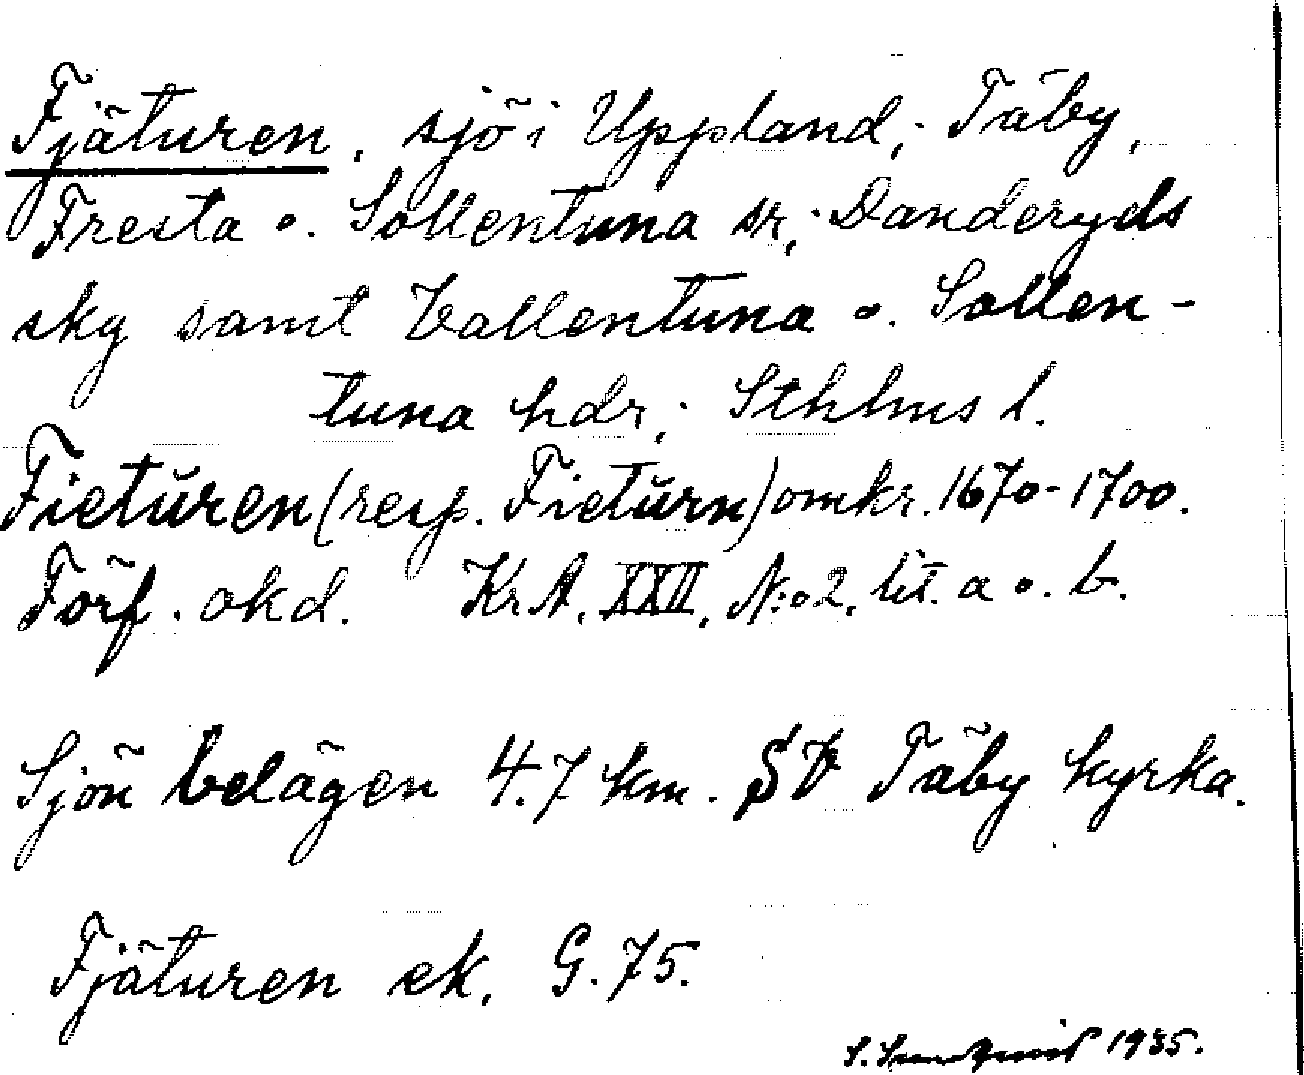 Fjäturen, sjö i Uppland; Täby,
Fresta o. Sollentuna sr; Danderyds
skg samt Vallentuna o. Sollen-
tuna hdr; Sthlms l.
Fietŭren (resp. Fietŭrn) omkr. 1670-1700.
Förf. okd. KrA, XXVI, N:o 2, lit. a o. b.
Sjön belägen 4.7 km. SV Täby kyrka.
Fjäturen ek. G. 75.
S. 1935.